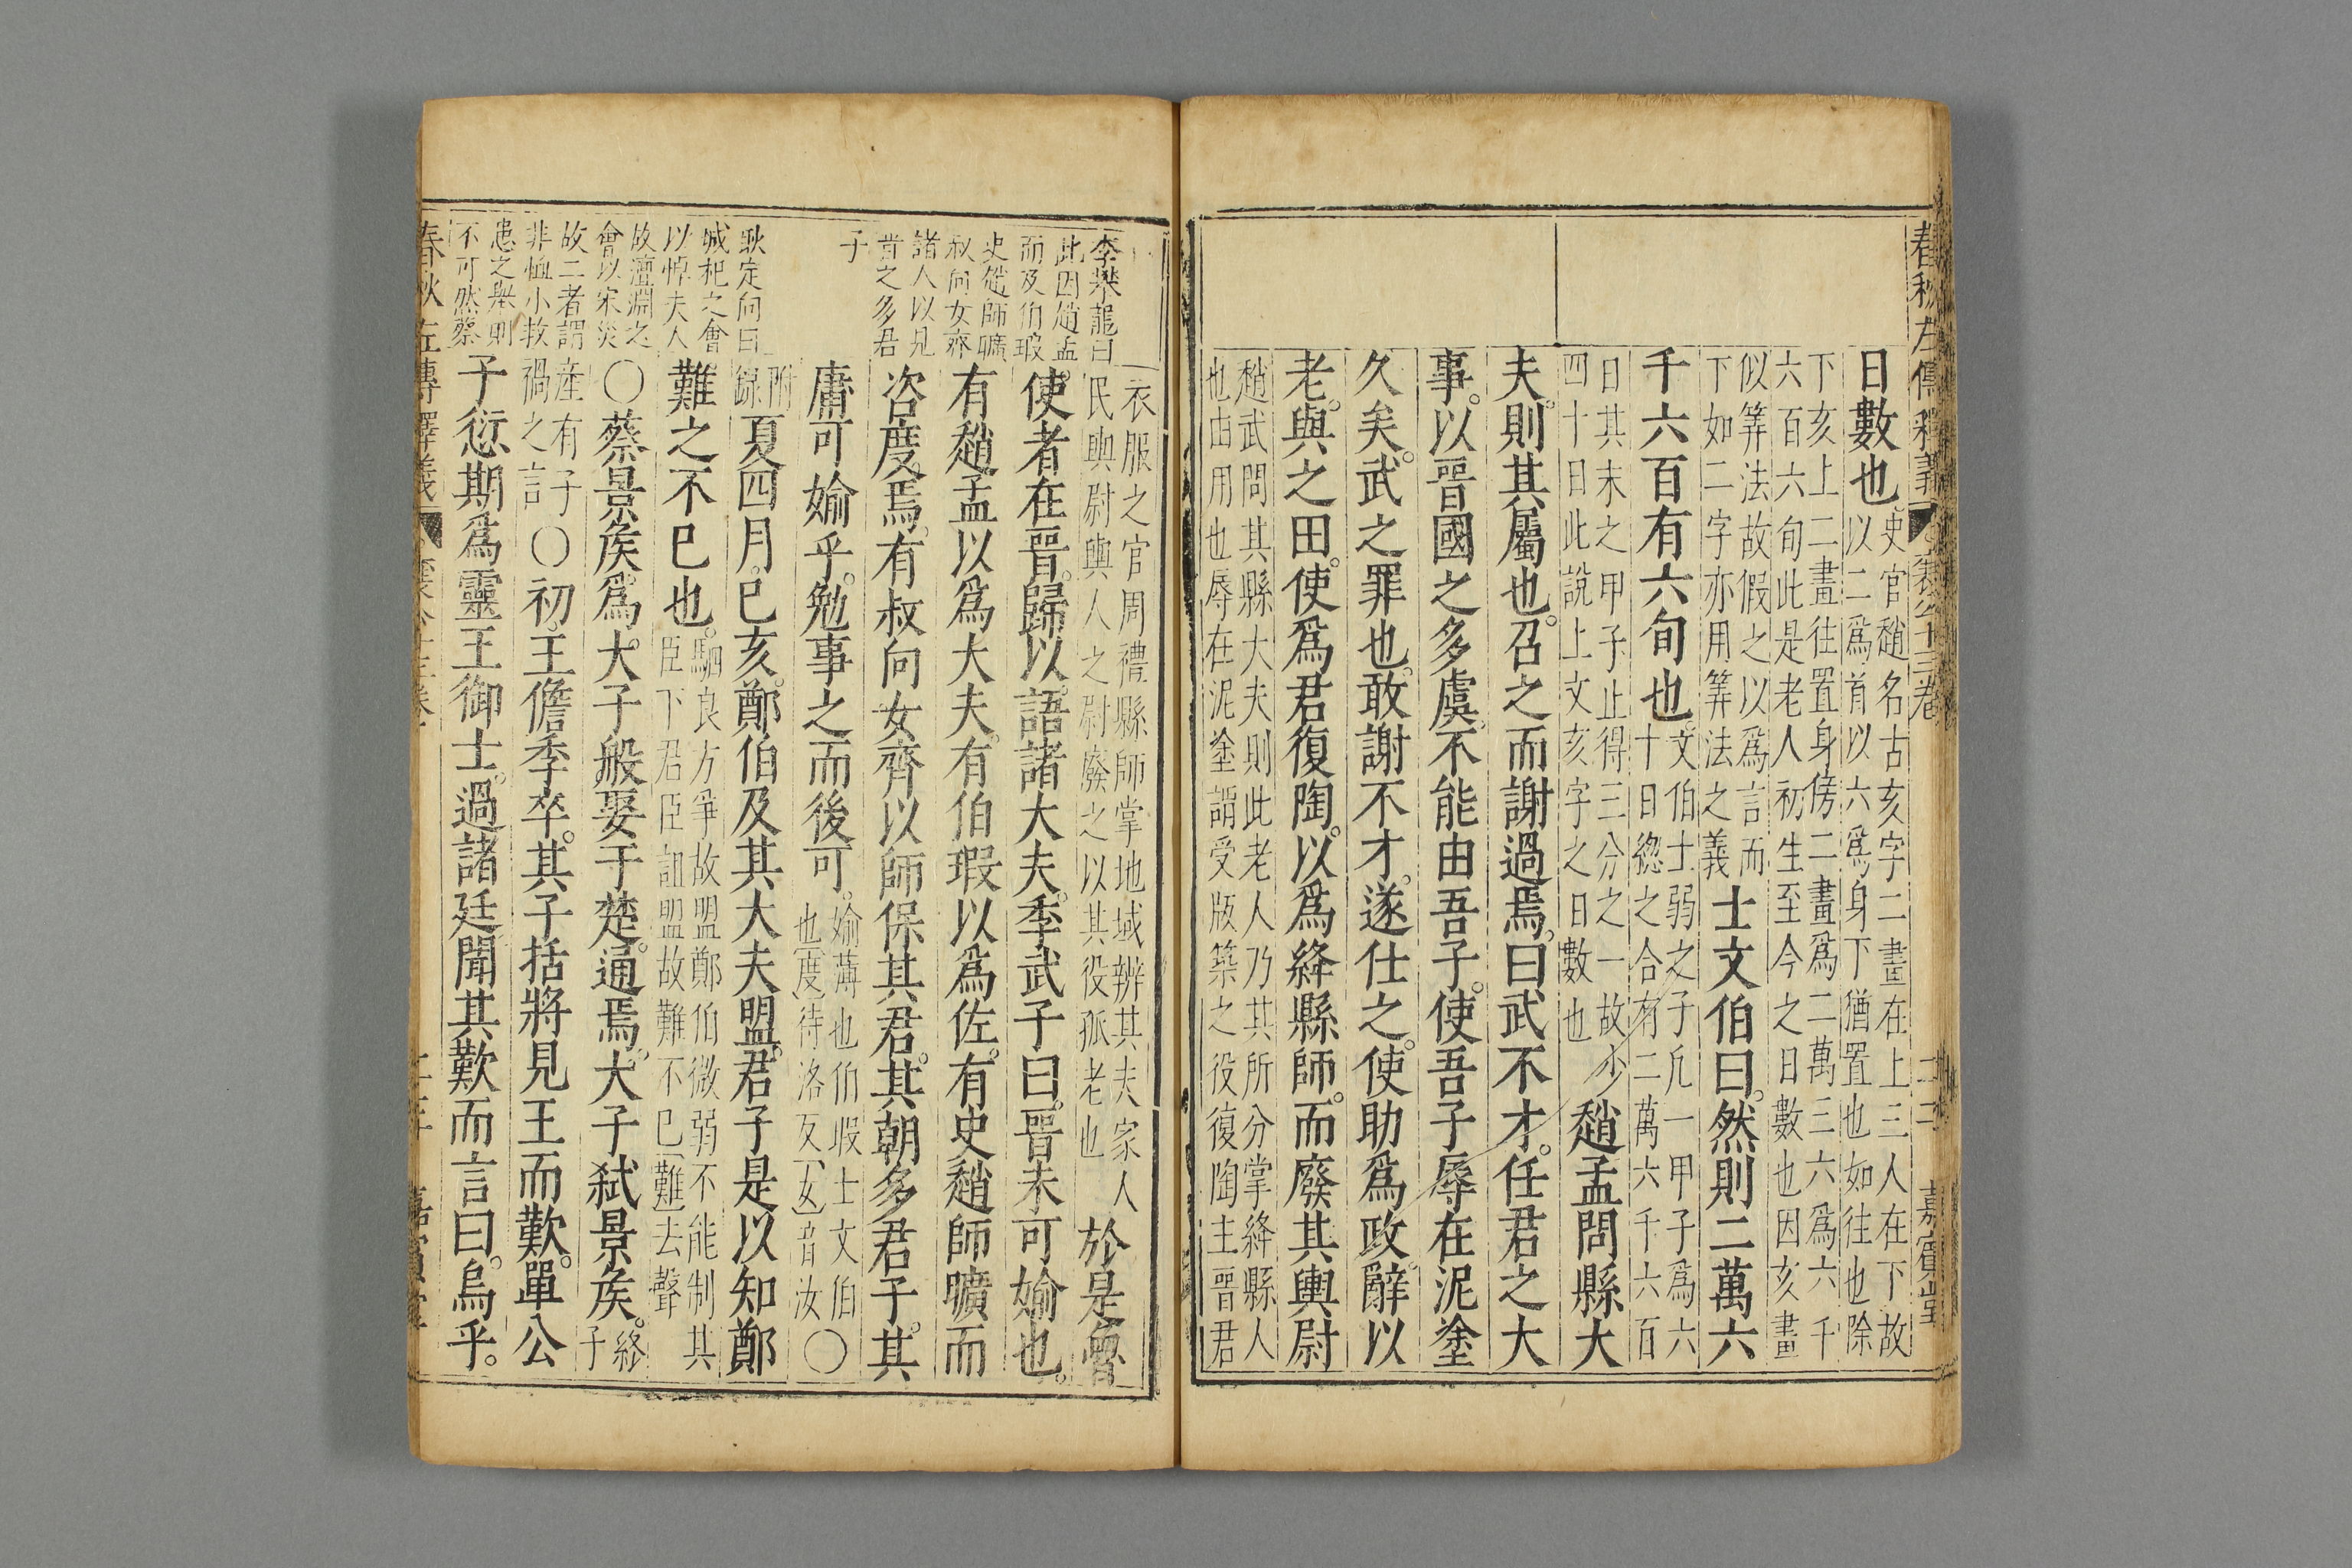 春秋左傳釋義 襄公十三卷 二二 嘉賓堂
日數也史官趙名古亥字二畫在上三人在下故
以二爲首以六爲身下猶置也如往也除
下亥上二畫往置身傍二畫爲二萬三六爲六千
六百六旬此是老人初生至今之日數也因亥畫
似筭法故假之以爲言而
下如二字亦用筭法之義士文伯曰然則二萬六
千六百有六旬也文伯士弱之子凢一甲子爲六
十日緫之合有二萬六千六百
日其末之甲子止得三分之一故少
四十日此說上文亥字之日數也趙孟問縣大
夫則其屬也召之而謝過焉曰武不才任君之大
事以晉國之多虞不能由吾子使吾子辱在泥塗
久矣武之罪也敢謝不才遂仕之使助爲政辭以
老與之田使爲君復陶以爲絳縣師而廢其輿尉
趙武問其縣大夫則此老人乃其所分掌絳縣人
也由用也辱在泥塗謂受版築之役復陶主晉君
衣服之官周禮縣師掌地域辨其夫家人
民輿尉輿人之尉廢之以其役孤老也於是魯
使者在晉歸以語諸大夫季武子曰晉未可媮也
有趙孟以爲大夫有伯瑕以爲佐有史趙師曠而
咨度焉有叔向女齊以師保其君其朝多君子其
庸可媮乎勉事之而後可媮薄也伯瑕士文伯
也度待洛反女音汝〇
附
録夏四月己亥鄭伯及其大夫盟君子是以知鄭
難之不已也駟良方爭故盟鄭伯微弱不能制其
臣下君臣詛盟故難不已難去聲
〇蔡景侯爲大子般娶于楚通焉大子弑景侯終
子
産有子
禍之言〇初王儋季卒其子括將見王而歎單公
子愆期爲靈王御士過諸廷聞其歎而言曰烏乎
李樂龍曰
此因趙孟
而及伯瑕
史趙師曠
叔向女齊
諸人以見
晉之多君
子
耿定向曰
城杞之會
以悼夫人
故澶淵之
會以宋災
故二者謂
非恤小救
患之舉則
不可然蔡
春秋左傳釋義